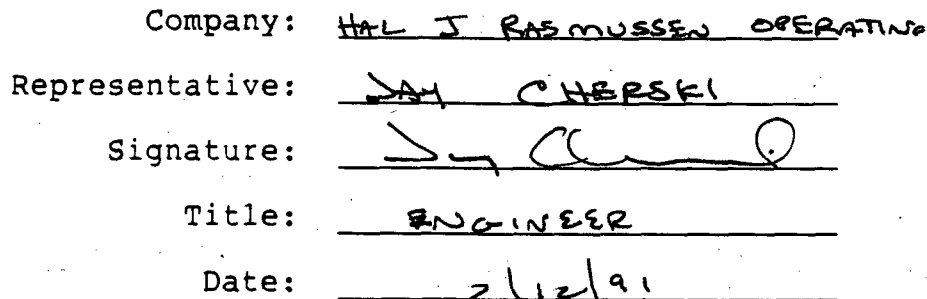 Company: HAL J RASMUSSEN OPERATING
Representative: JAY CHERSKI
Signature: Jay
Title: ENGINEER
Date: 2/12/91